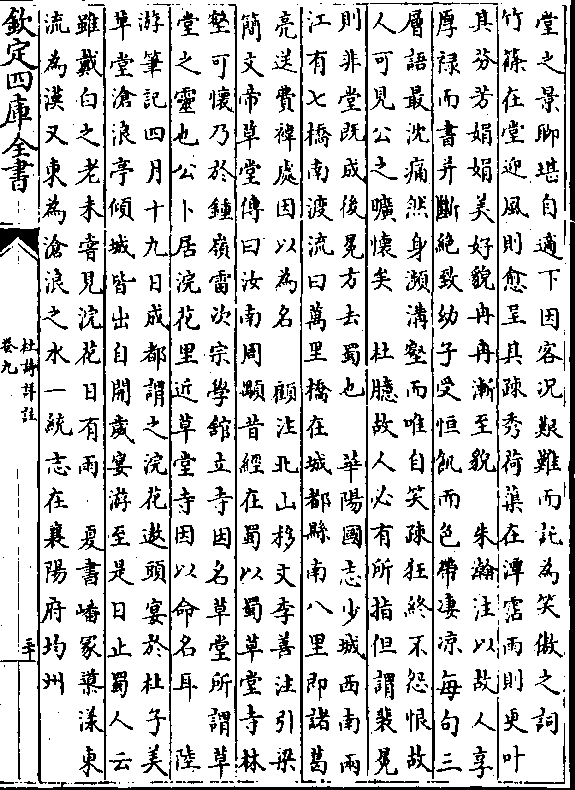 堂之景聊堪自適下因客况艱難而託為笑傲之詞
竹篠在堂迎風則愈呈其疎秀荷蕖在潭霑雨則更叶
其芬芳娟娟美好貌冉冉漸至貌　朱瀚注以故人享
厚祿而書斷絶致幼子受恒飢而色帶凄凉每句三
層語最沈痛然身瀕溝壑而唯自笑疎狂終不怨恨故
人可見公之曠懷矣　杜臆故人必有所指但謂裴冕
則非堂既成後冕方去蜀也　華陽國志少城西南兩
江有七橋南渡流曰萬里橋在城都縣南八里即諸葛
亮送費禕處因以為名　顧注北山移文李善注引梁
簡文帝草堂傳曰汝南周顒昔經在蜀以蜀草堂寺林
壑可懷乃於鍾嶺雷次宗學館立寺因名草堂所謂草
堂之靈也公卜居浣花里近草堂寺因以命名耳　陸
游筆記四月十九日成都謂之浣花遨頭宴於杜子美
草堂滄浪亭傾城皆出自開歲宴游至是日止蜀人云
雖戴白之老未嘗見浣花日有雨　夏書嶓冢䆃漾東
流為漢又東為滄浪之水一統志在襄陽府均州
欽定四庫全書
杜詩詳註
卷九
二十